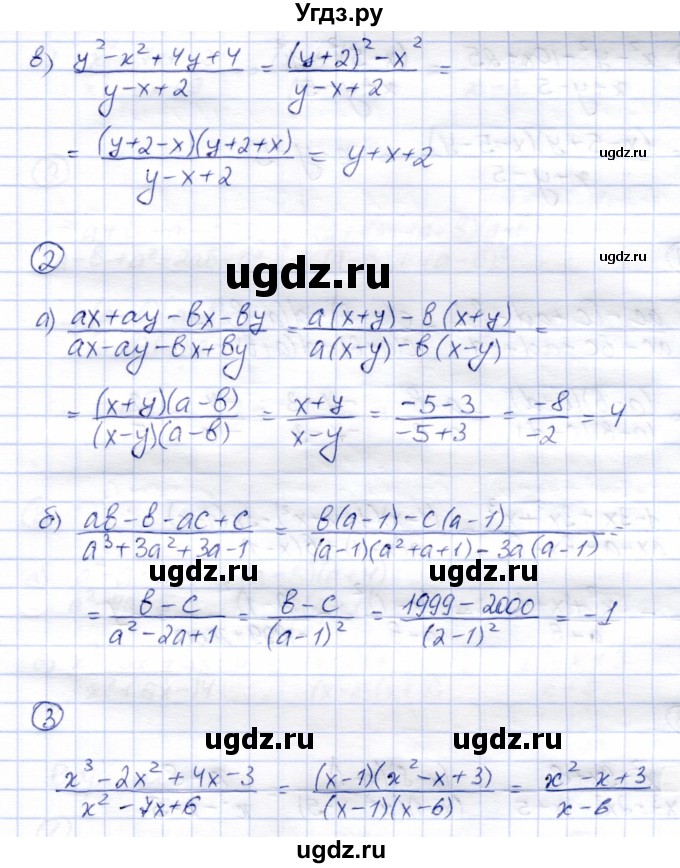 Угдз.ру
в) (y²-x²+4y+4)/(y-x+2) = ((y+2)²-x²)/(y-x+2) =
= ((y+2-x)(y+2+x))/(y-x+2) = y+x+2
ugdz.ru
②
ugdz.ru
ugdz.ru
а) (ax+ay-вx-вy)/(ax-ay-вx+вy) = (a(x+y)-в(x+y))/(a(x-y)-в(x-y)) =
= ((x+y)(a-в))/((x-y)(a-в)) = (x+y)/(x-y) = (-5-3)/(-5+3) = (-8)/(-2) = 4
б) (aв-в-ac+c)/(a³+3a²+3a-1) = (в(a-1)-c(a-1))/((a-1)(a²+a+1)-3a(a-1)) =
ugdz.ru
ugdz.ru
= (в-c)/(a²-2a+1) = (в-c)/(a-1)² = (1999-2000)/(2-1)² = -1
③
ugdz.ru
ugdz.ru
(x³-2x²+4x-3)/(x²-7x+6) = ((x-1)(x²-x+3))/((x-1)(x-6)) = (x²-x+3)/(x-6)
ugdz.ru